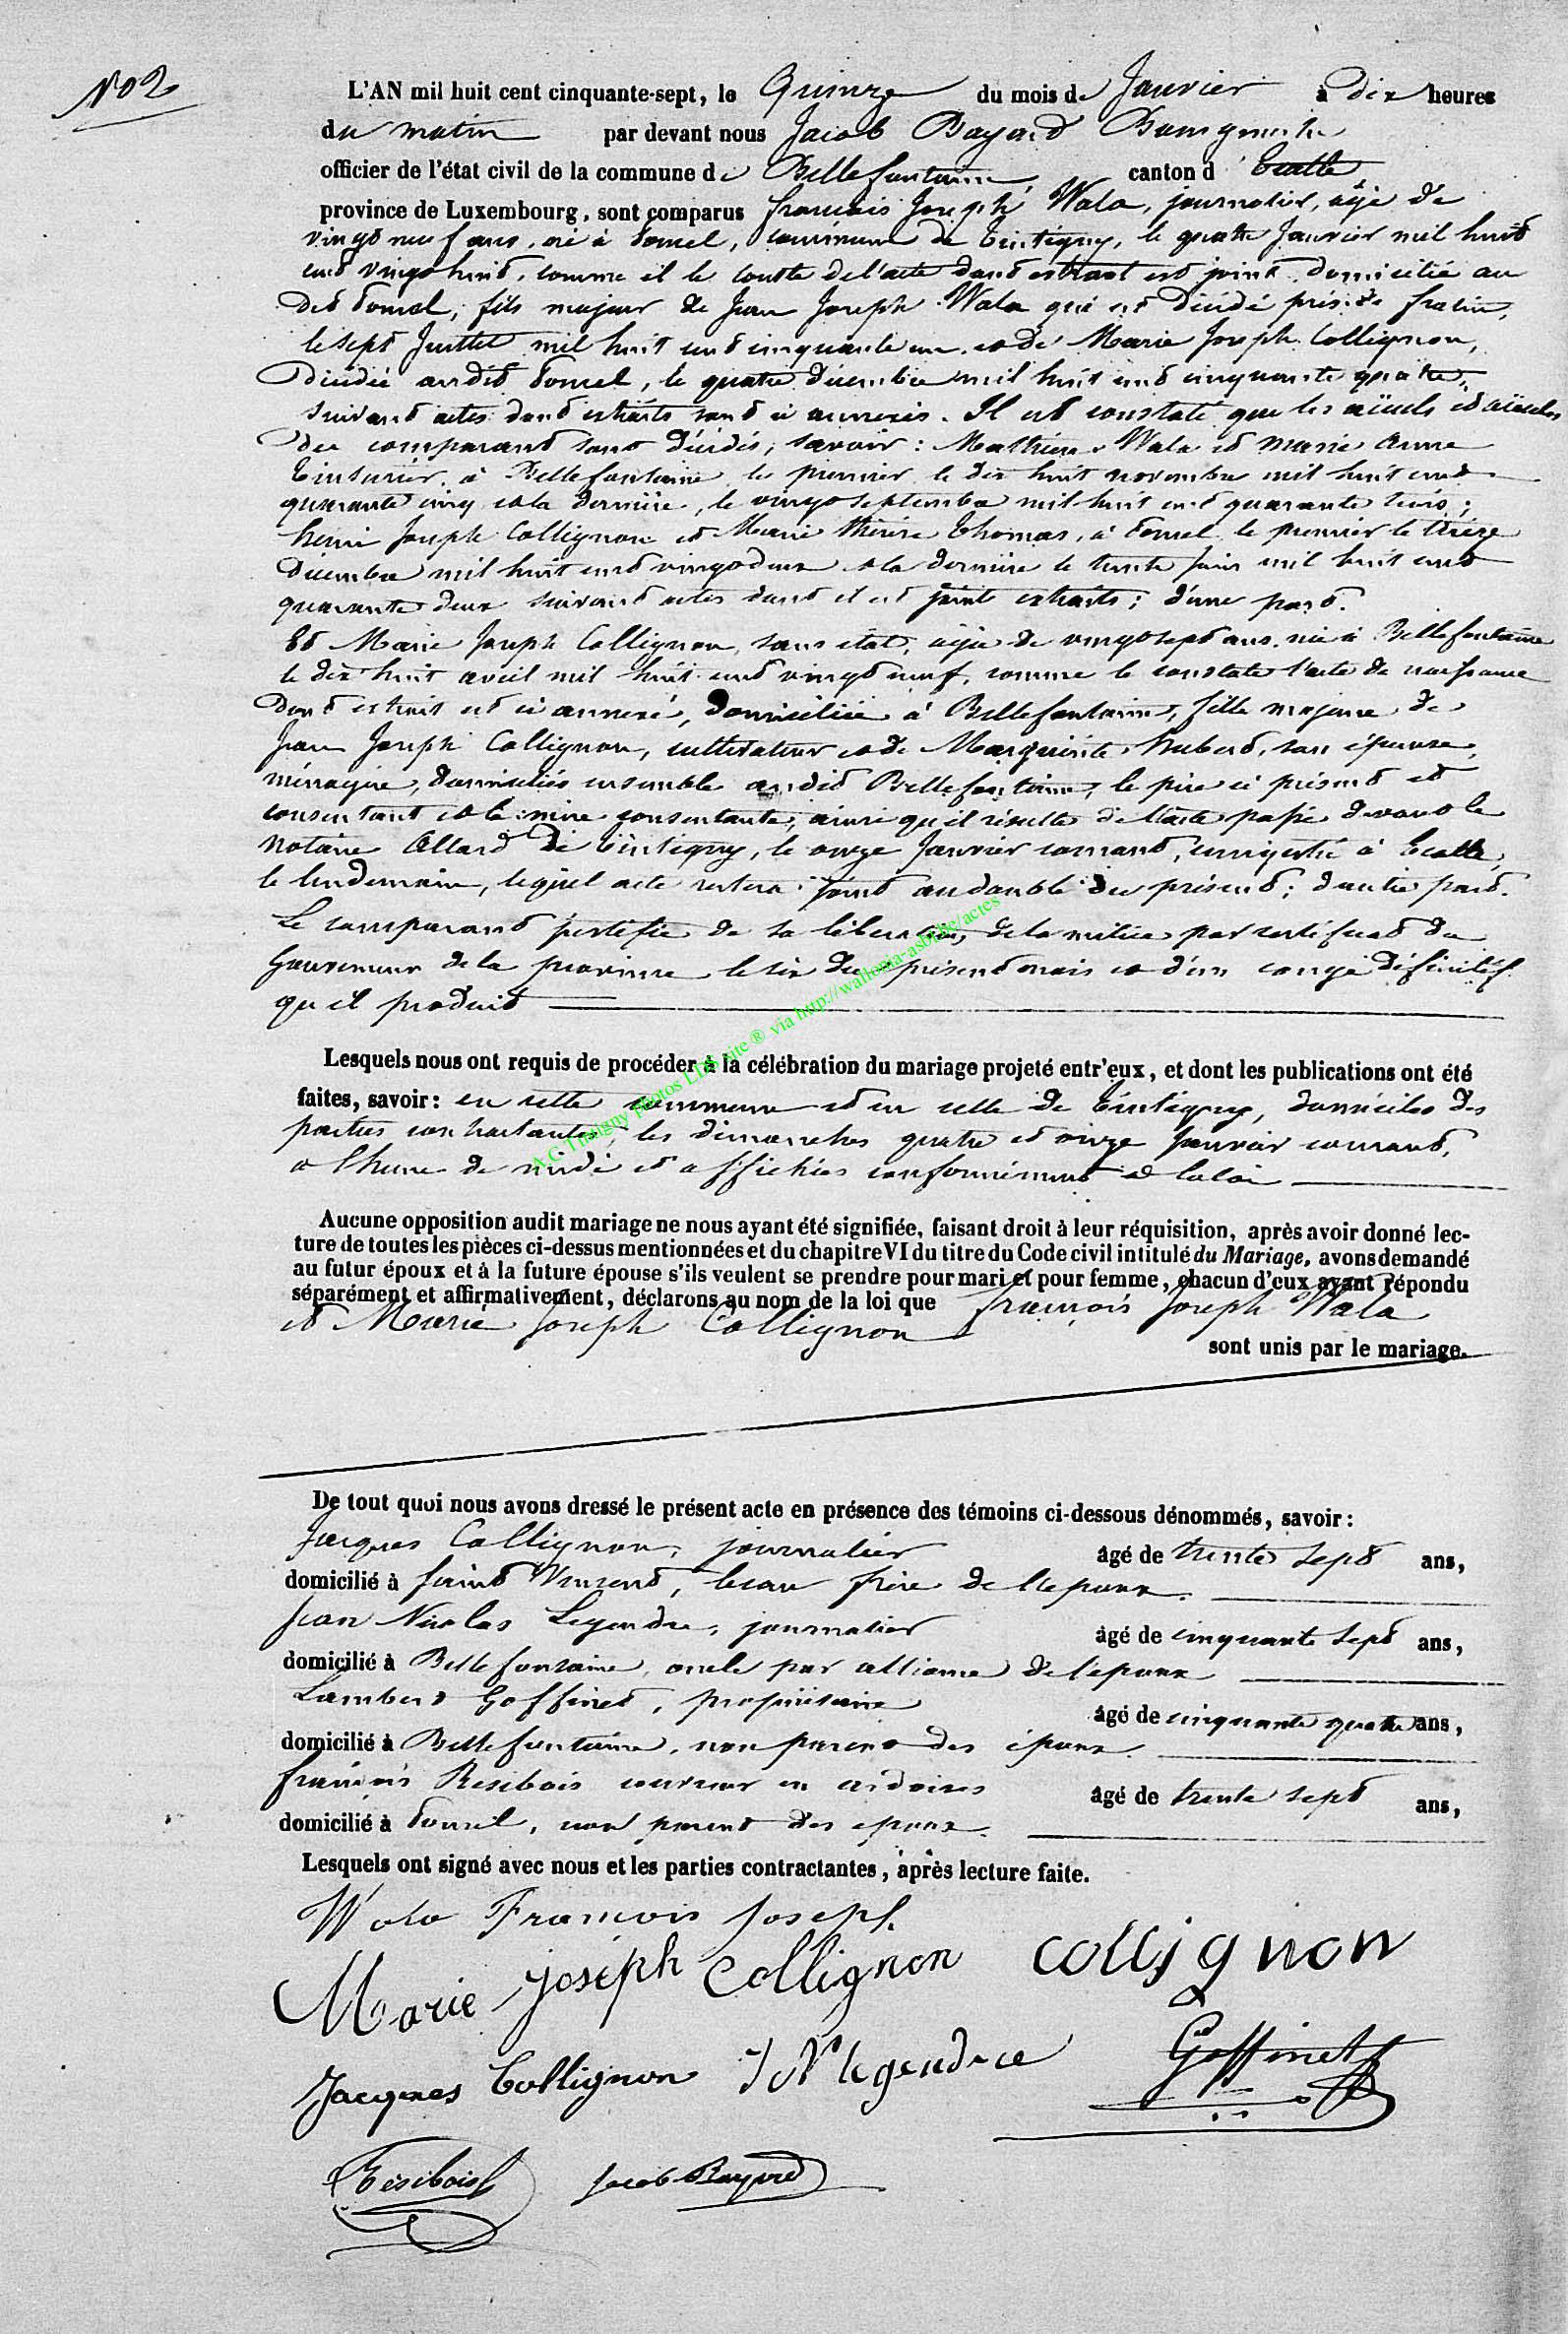 No 2
L'AN mil huit cent cinquante-sept, le Quinze du mois de Janvier à dix heures
du matin par devant nous Jacob Bayard Bourgmestre
officier de l'état civil de la commune de Bellefontaine, canton d' Etalle,
province de Luxembourg, sont comparus françois Joseph Wala, journalier, âgé de
vingt neuf ans, né à Lomel, commune de Tintigny, le quatre Janvier mil huit
cent vingt huit, comme il le conste de l'acte dont extrait est joint, domicilié au
dit Lomel, fils majeur de Jean Joseph Wala qui est décédé près de fratin,
le sept Juillet mil huit cent cinquante un, et de Marie Joseph Collignon,
décédée audit Lomel, le quatre décembre mil huit cent cinquante quatre,
suivant actes dont extraits sont ci annexés. Il est constaté que les aïeuls et aïeules
du comparant sont décédés, savoir : Mathieu Wala et Marie Anne
Tinturier, à Bellefontaine, le premier le dix huit novembre mil huit cent
quarante cinq et la dernière, le vingt septembre mil huit cent quarante trois ;
henri Joseph Collignon et Marie Thérèse Thomas, à Lomel, le premier le treize
décembre mil huit cent vingt deux et la dernière le trente Juin mil huit cent
quarante deux suivant actes dont il est joint extraits ; d'une part.
Et Marie Joseph Collignon, sans état, âgée de vingt sept ans, née à Bellefontaine
le dix huit avril mil huit cent vingt neuf, comme le constate l'acte de naissance
dont extrait est ci annexé, domiciliée à Bellefontaine, fille majeure de
Jean Joseph Collignon, cultivateur et de Marguerite Hubert, son épouse,
ménagère, domiciliés ensemble audit Bellefontaine, le père ci présent et
consentant et la mère consentante, ainsi qu'il résulte de l'acte passé devant le
Notaire Allard de Tintigny, le onze Janvier courant, enregistré à Etalle,
le lendemain, lequel acte restera joint au double du présent ; d'autre part.
Le comparant justifie de sa libération de la milice par certificat du
Gouverneur de la province le six du présent mois et d'un congé définitif
qu'il produit
A.C Tintigny photos LDS site ® via http://wallonia-asbl.be/actes
Lesquels nous ont requis de procéder à la célébration du mariage projeté entr'eux, et dont les publications ont été
faites, savoir : en cette commune et en celle de Tintigny, domiciles des
parties contractantes, les dimanches quatre et onze Janvier courant,
a l'heure de midi et affichées conformément a la loi
Aucune opposition audit mariage ne nous ayant été signifiée, faisant droit à leur réquisition, après avoir donné lec-
ture de toutes les pièces ci-dessus mentionnées et du chapitre VI du titre du Code civil intitulé du Mariage, avons demandé
au futur époux et à la future épouse s'ils veulent se prendre pour mari et pour femme, chacun d'eux ayant répondu
séparément et affirmativement, déclarons au nom de la loi que françois Joseph Wala
et Marie Joseph Collignon
sont unis par le mariage.
De tout quoi nous avons dressé le présent acte en présence des témoins ci-dessous dénommés, savoir :
Jacques Collignon, journalier âgé de trente sept ans,
domicilié à Saint Vincent, beau frère de l'epoux.
Jean Nicolas Legendre, journalier âgé de cinquante sept ans,
domicilié à Bellefontaine, oncle par alliance de l'epoux
Lambert Goffinet, propriétaire âgé de cinquante quatre ans,
domicilié à Bellefontaine, non parent des époux.
françois Resibois couvreur en ardoises âgé de trente sept ans,
domicilié à Lomel, non parent des epoux.
Lesquels ont signé avec nous et les parties contractantes, après lecture faite.
Wala François Joseph.
Marie joseph Collignon collignon
Jacques Collignon J N legendre Goffinet
Résibois Jacob Bayard